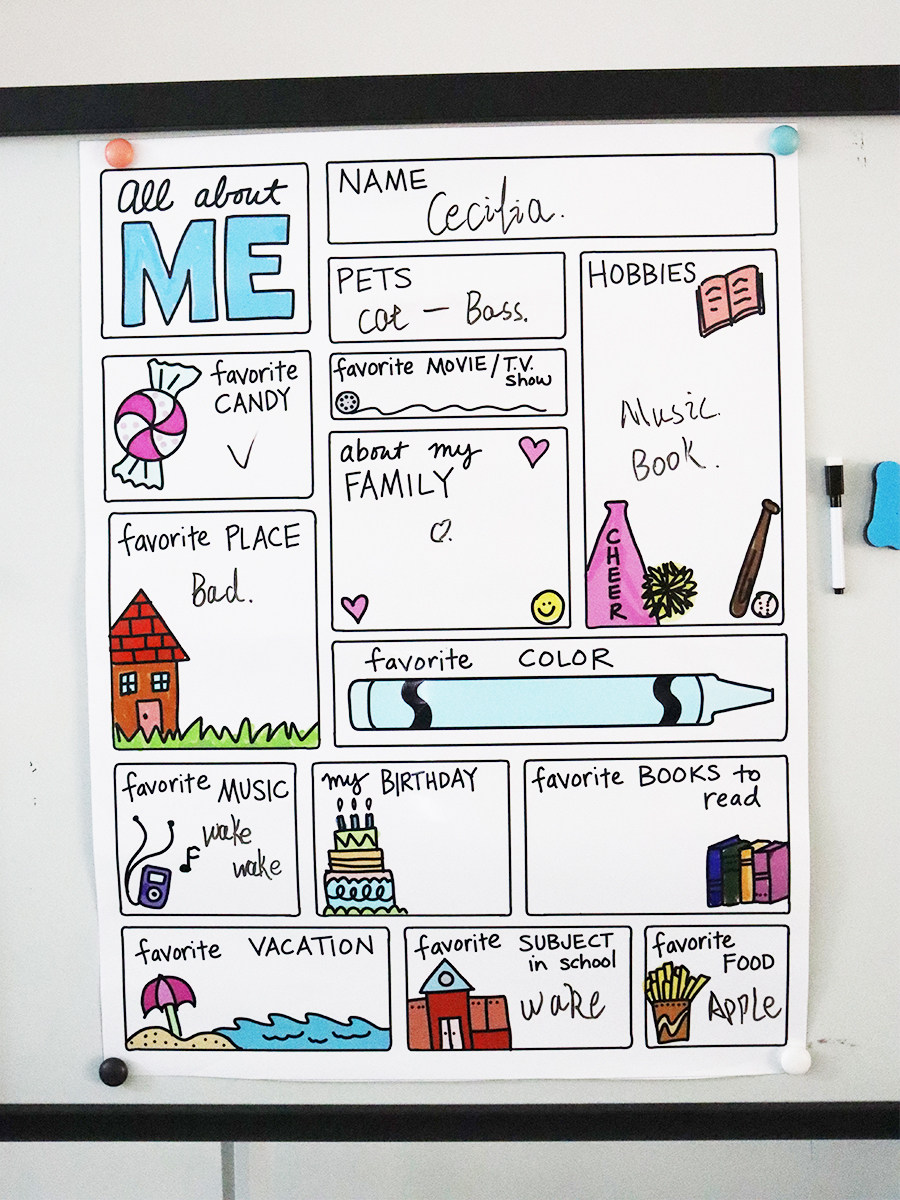 All about
ME
NAME
Cecilia.
PETS
cat – Bass.
HOBBIES
Music.
Book.
CHEER
favorite
CANDY
favorite MOVIE/T.V.
show
about my
FAMILY
favorite PLACE
Bad.
favorite COLOR
favorite
MUSIC
wake
wake
my BIRTHDAY
favorite BOOKS to
read
favorite VACATION
favorite SUBJECT
in school
wake
favorite
FOOD
Apple